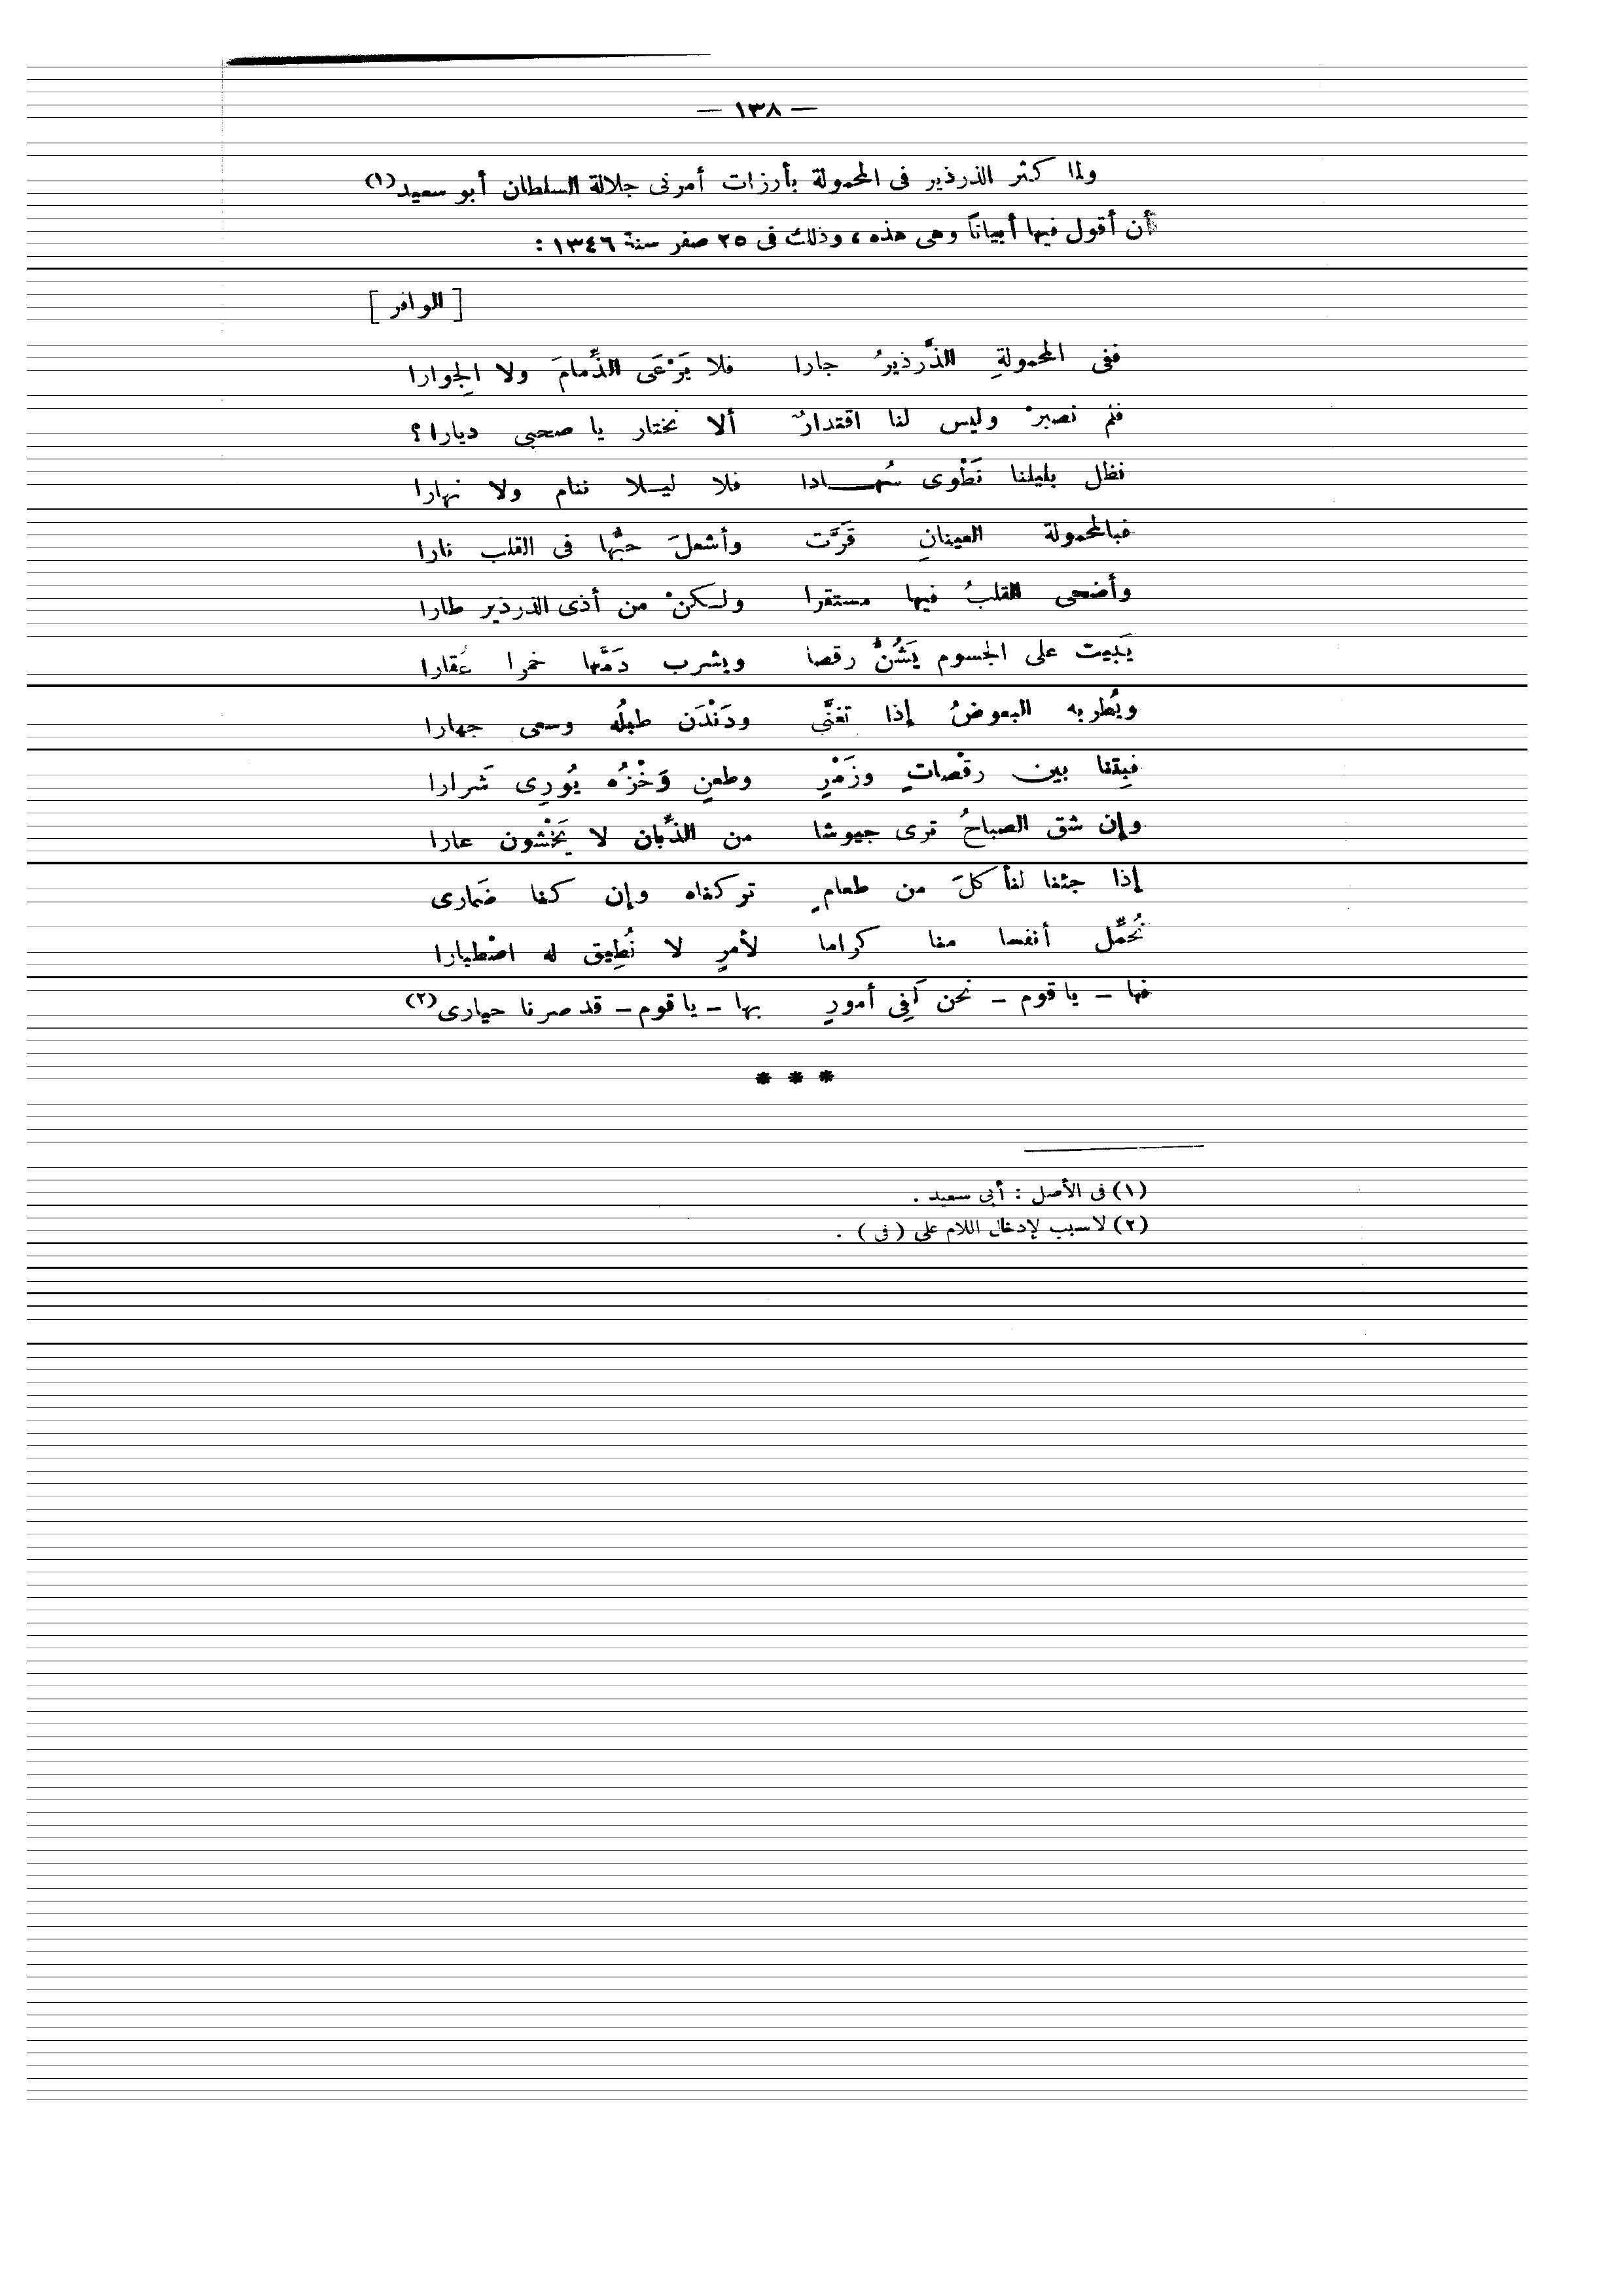 — ١٣٨ —
ولما كثر الذرذير فى المحمولة بأرزات أمرنى جلالة السلطان أبو سعيد(١)
أن أقول فيها أبياتاً وهى هذه ، وذلك فى ٢٥ صفر سنة ١٣٤٦ :
[ الوافر ]
ففى المحمولةِ الذَّرذيرُ جارا فلا يَرْعَى الذِّمامَ ولا الِجوارا
فلم نصبرْ وليس لنا اقتدارٌ ألا نختار يا صحبى ديارا ؟
نظل بليلنا نَطْوى سُهـــادا فلا ليــلا ننام ولا نهارا
فبالمحمولة العينانِ قَرَّت وأشعلَ حبُّها فى القلب نارا
وأضحى القلبُ فيها مستقرا ولـكنْ من أذى الذرذير طارا
يَبيت على الجسوم يَشُنُّ رقصا ويشرب دَمَّها خمرا عُقارا
ويُطربه البعوضُ إذا تغنَّى ودَنْدَن طبلُه وسعى جهارا
فبِتنا بين رقْصاتٍ وزَمْرٍ وطعنٍ وَخْزُه يُورِى شَرارا
وإن شق الصباحُ ترى جيوشا من الذِّبان لا يَخْشون عارا
إذا جئنا لنأكلَ من طعامٍ تركناه وإن كنا ضَمارى
نُحمِّل أنفسا منا كراما لأمرٍ لا نُطِيق له اصْطبارا
فها – يا قوم – نحن لَفِى أمورٍ بها – يا قوم – قد صرنا حيارى(٢)
* * *
(١) فى الأصل : أبى سعيد .
(٢) لا سبب لإدخال اللام على ( فى ) .